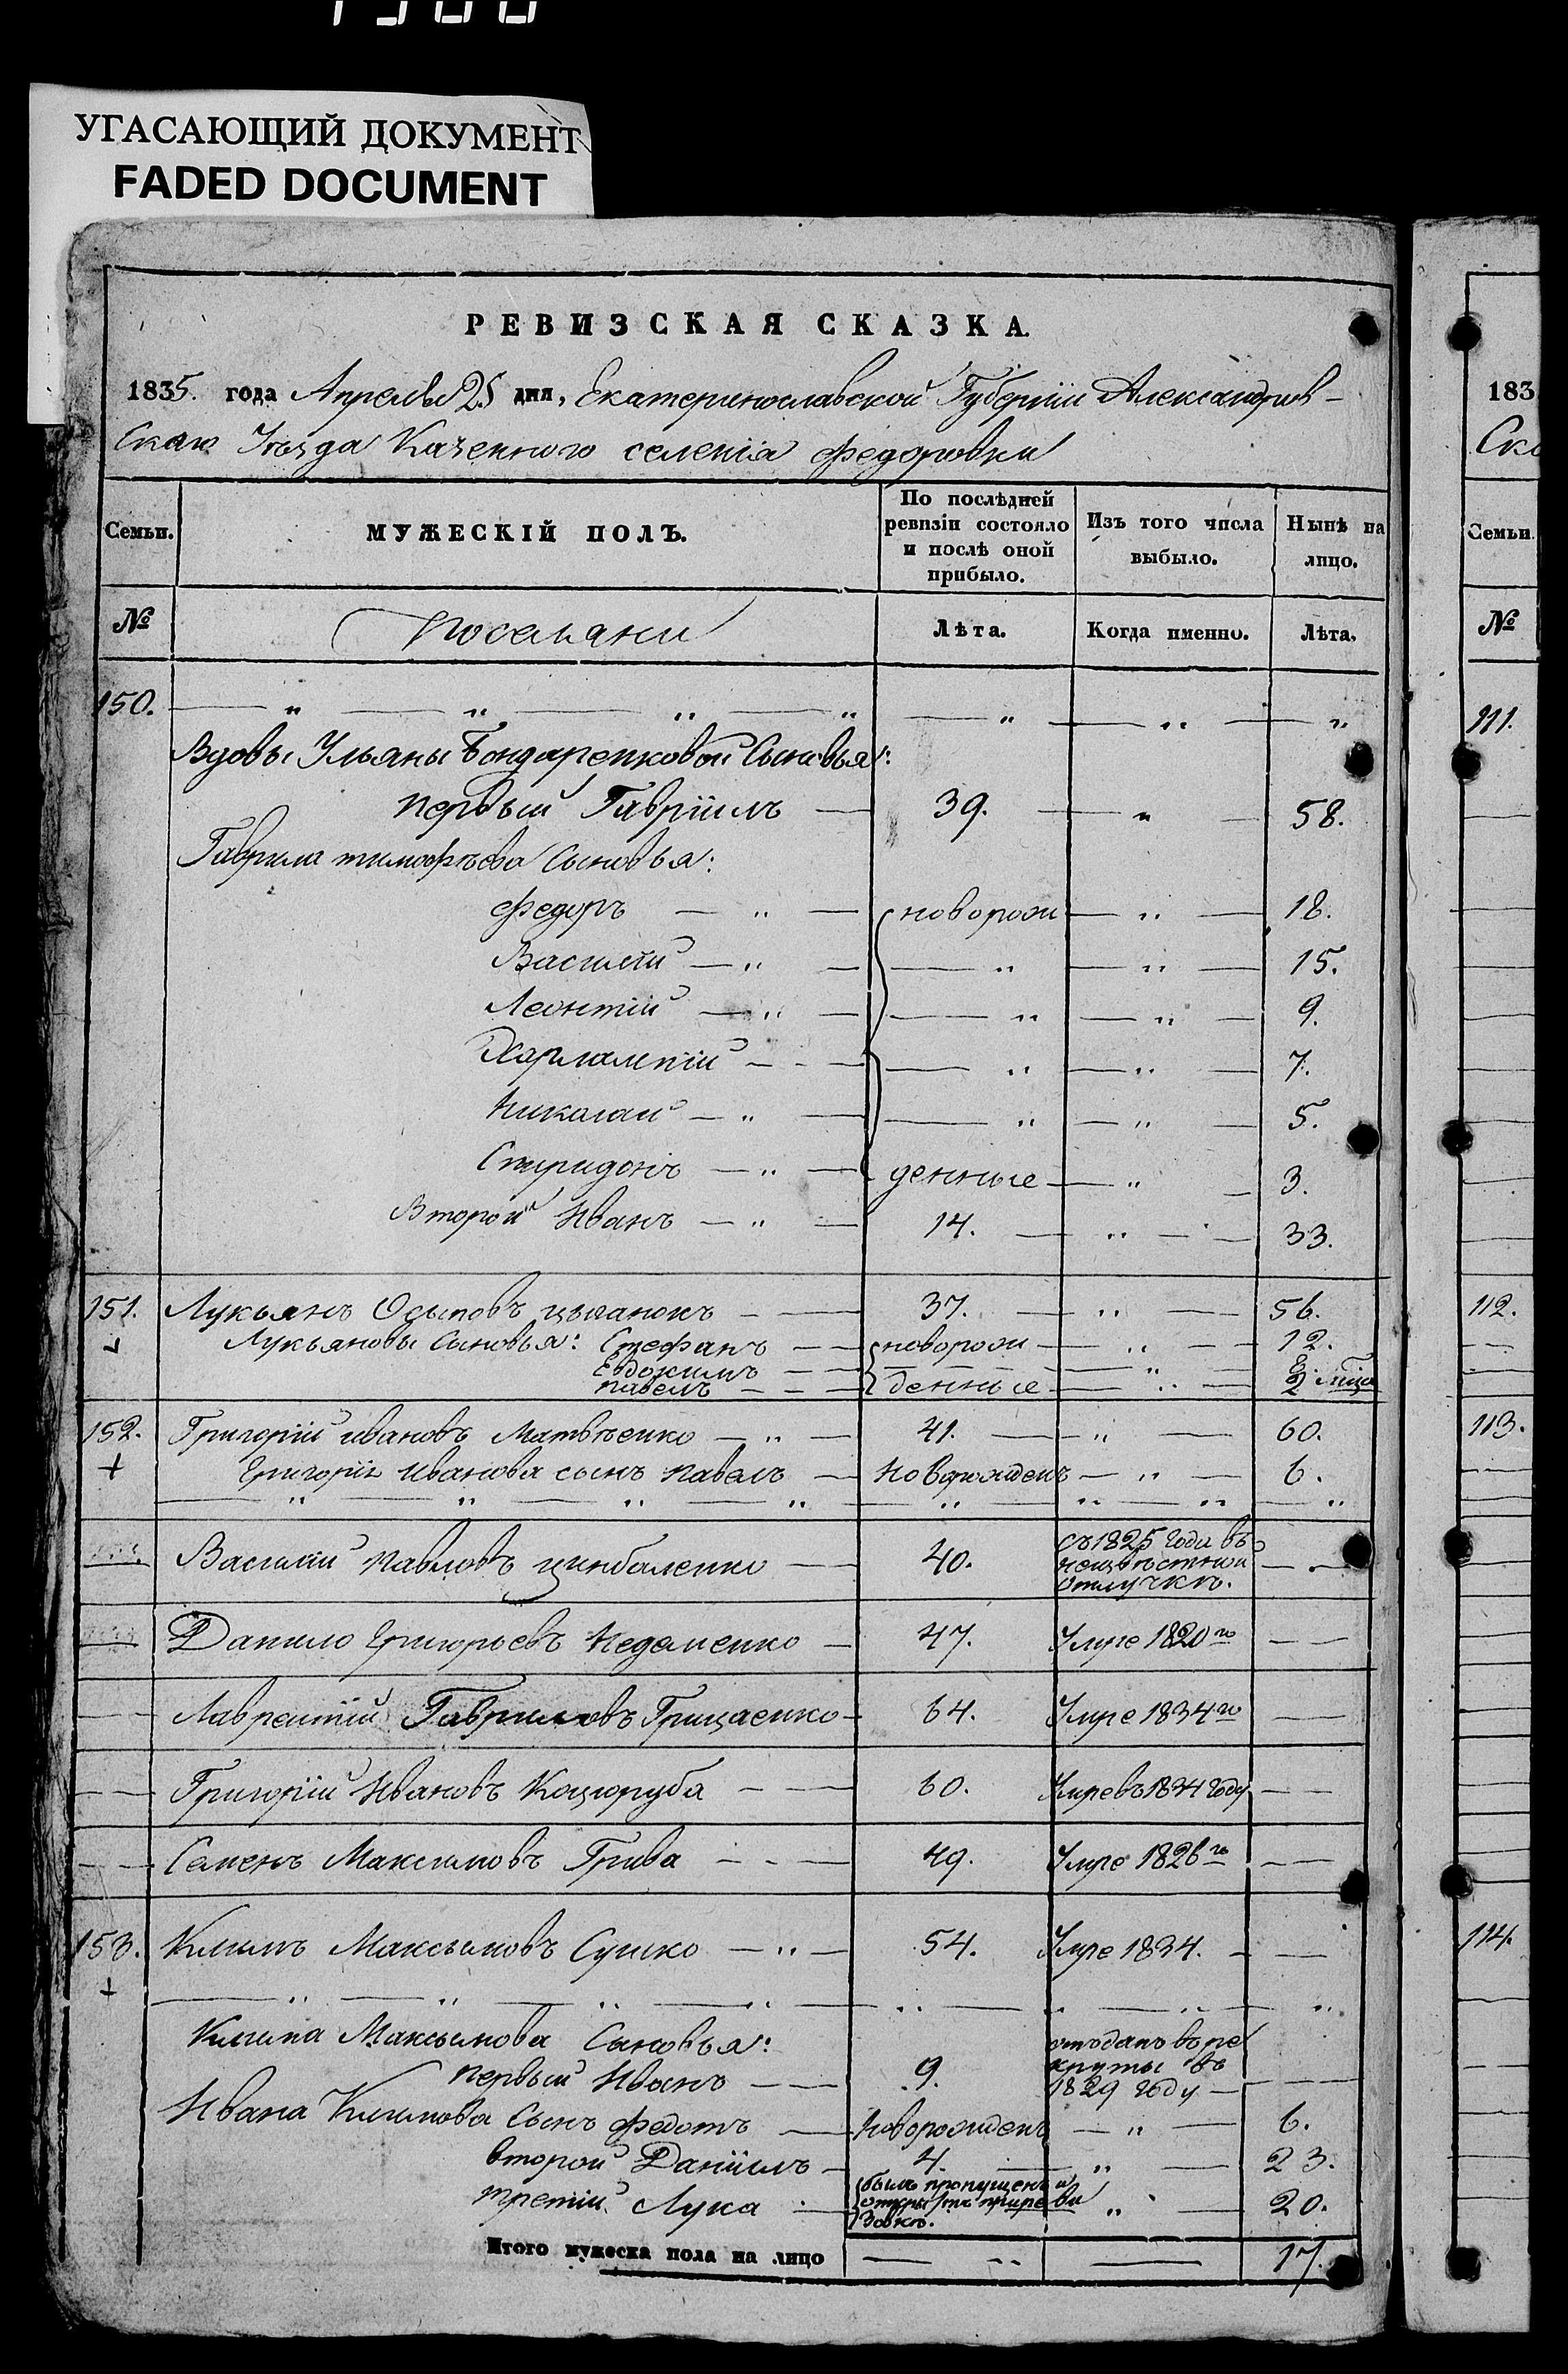 УГАСАЮЩИЙ ДОКУМЕНТ
FADED DOCUMENT
РЕВИЗСКАЯ СКАЗКА.
1835. года Апреля 25 дня, Екатеринославской Губернiи Александров-
скаго Уѣзда Казенного селенiя Федоровки
Семьи. МУЖЕСКІЙ ПОЛЪ. По послѣдней ревизіи состояло и послѣ оной прибыло. Изъ того числа выбыло. Нынѣ на лицо.
№ Поселяни Лѣта. Когда именно. Лѣта.
150. — " — " — " — " — " — " — "
Вдовы Ульяны Бондаренковой Сыновья:
первый Гаврiилъ — 39. — " — 58.
Гаврила тимофѣева Сыновья:
Федоръ — " — новорожи — " — 18.
Василiй — " — — " — " — 15.
Леонтiй — " — — " — " — 9.
Харлампiй - - — " — " — 7.
Николай — " — — " — " — 5.
Спиридонъ — " — денные — " — 3.
Второй Иванъ — " — 14. — " — 33.
151. Лукьянъ Осыповъ цыганокъ - — 37. — " — 56.
Лукьяновы Сыновья: Стефанъ — новорожи — " — 12.
Евдокимъ — — — " — 8.
павелъ - — — денные — " — 2 мѣца
152. Григорiй ивановъ Матвѣенко — " — 41. — " — 60.
+ Григорiя Иванова сынъ павелъ — Новорожденъ — " — 6.
— " — " — " — " — " — " — " — "
Василiй павловъ цинбаленко — 40. съ 1825 года въ
неизвѣстной
отлучкѣ. — -
Данило Григорьевъ Недаменко — 47. Умре 1820го — —
Лаврентiй Гавриловъ Грицаенко - 64. Умре 1834го —
Григорiй Ивановъ Коцюруба - — 60. Умре въ 1834 году — —
Семенъ Максимовъ Грива - - — 49. Умре 1826го — —
153. Климъ Максимовъ Сушко — " — 54. Умре 1834. - —
+ — " — " — " — " — " — " — " — "
Клима Максимова Сыновья:
первый Иванъ — — 9. отъданъ въ ре
круты въ
1829 году — — —
Ивана Климова Сынъ Федотъ — Новорожденъ — " — 6.
второй Данiилъ — 4. — " — 23.
третiй Лука - былъ пропущенъ и
открытъ при реви
зовкѣ. " — 20.
Итого мужеска пола на лицо — " — 17.
183
Семьи.
№
111.
112.
113.
114.